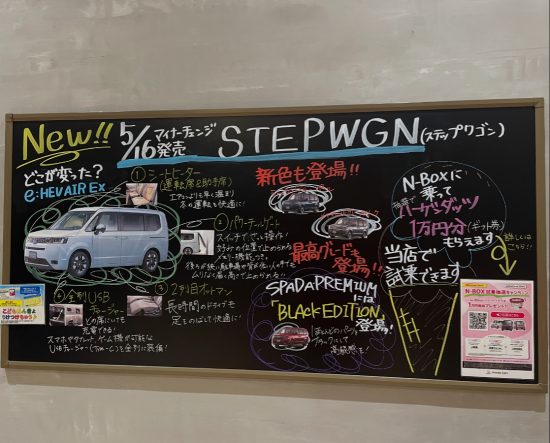 New!!
5/16発売
マイナーチェンジ
STEPWGN(ステップワゴン)
どこが変った?
e:HEV AIR Ex
① シートヒーター
(運転席&助手席)
エアコンよりも早く温まり
冬の運転も快適に!
② パワーテールゲート
スイッチでらくらく操作!
好みの位置で止められる
メモリー機能つき。
③ 2列目オットマン
長時間のドライブも
足をのばして快適に!
④ 全列USB
チャージャー
どの席にいても
充電できる!
スマホやタブレット、ゲーム機が可能な
USBチャージャー(Type-C)を全列に装備!
新色も登場!!
最高グレードも
登場!!
SPADA PREMIUM
には
"BLACK EDITION"
登場!
ブラックにして
高級感を!
N-BOXに
乗って
抽選で
ハーゲンダッツ
1万円分(ギフト券)
もらえます
当店で
試乗できます
詳しくは
こちら!!
N-BOX 試乗抽選キャンペーン